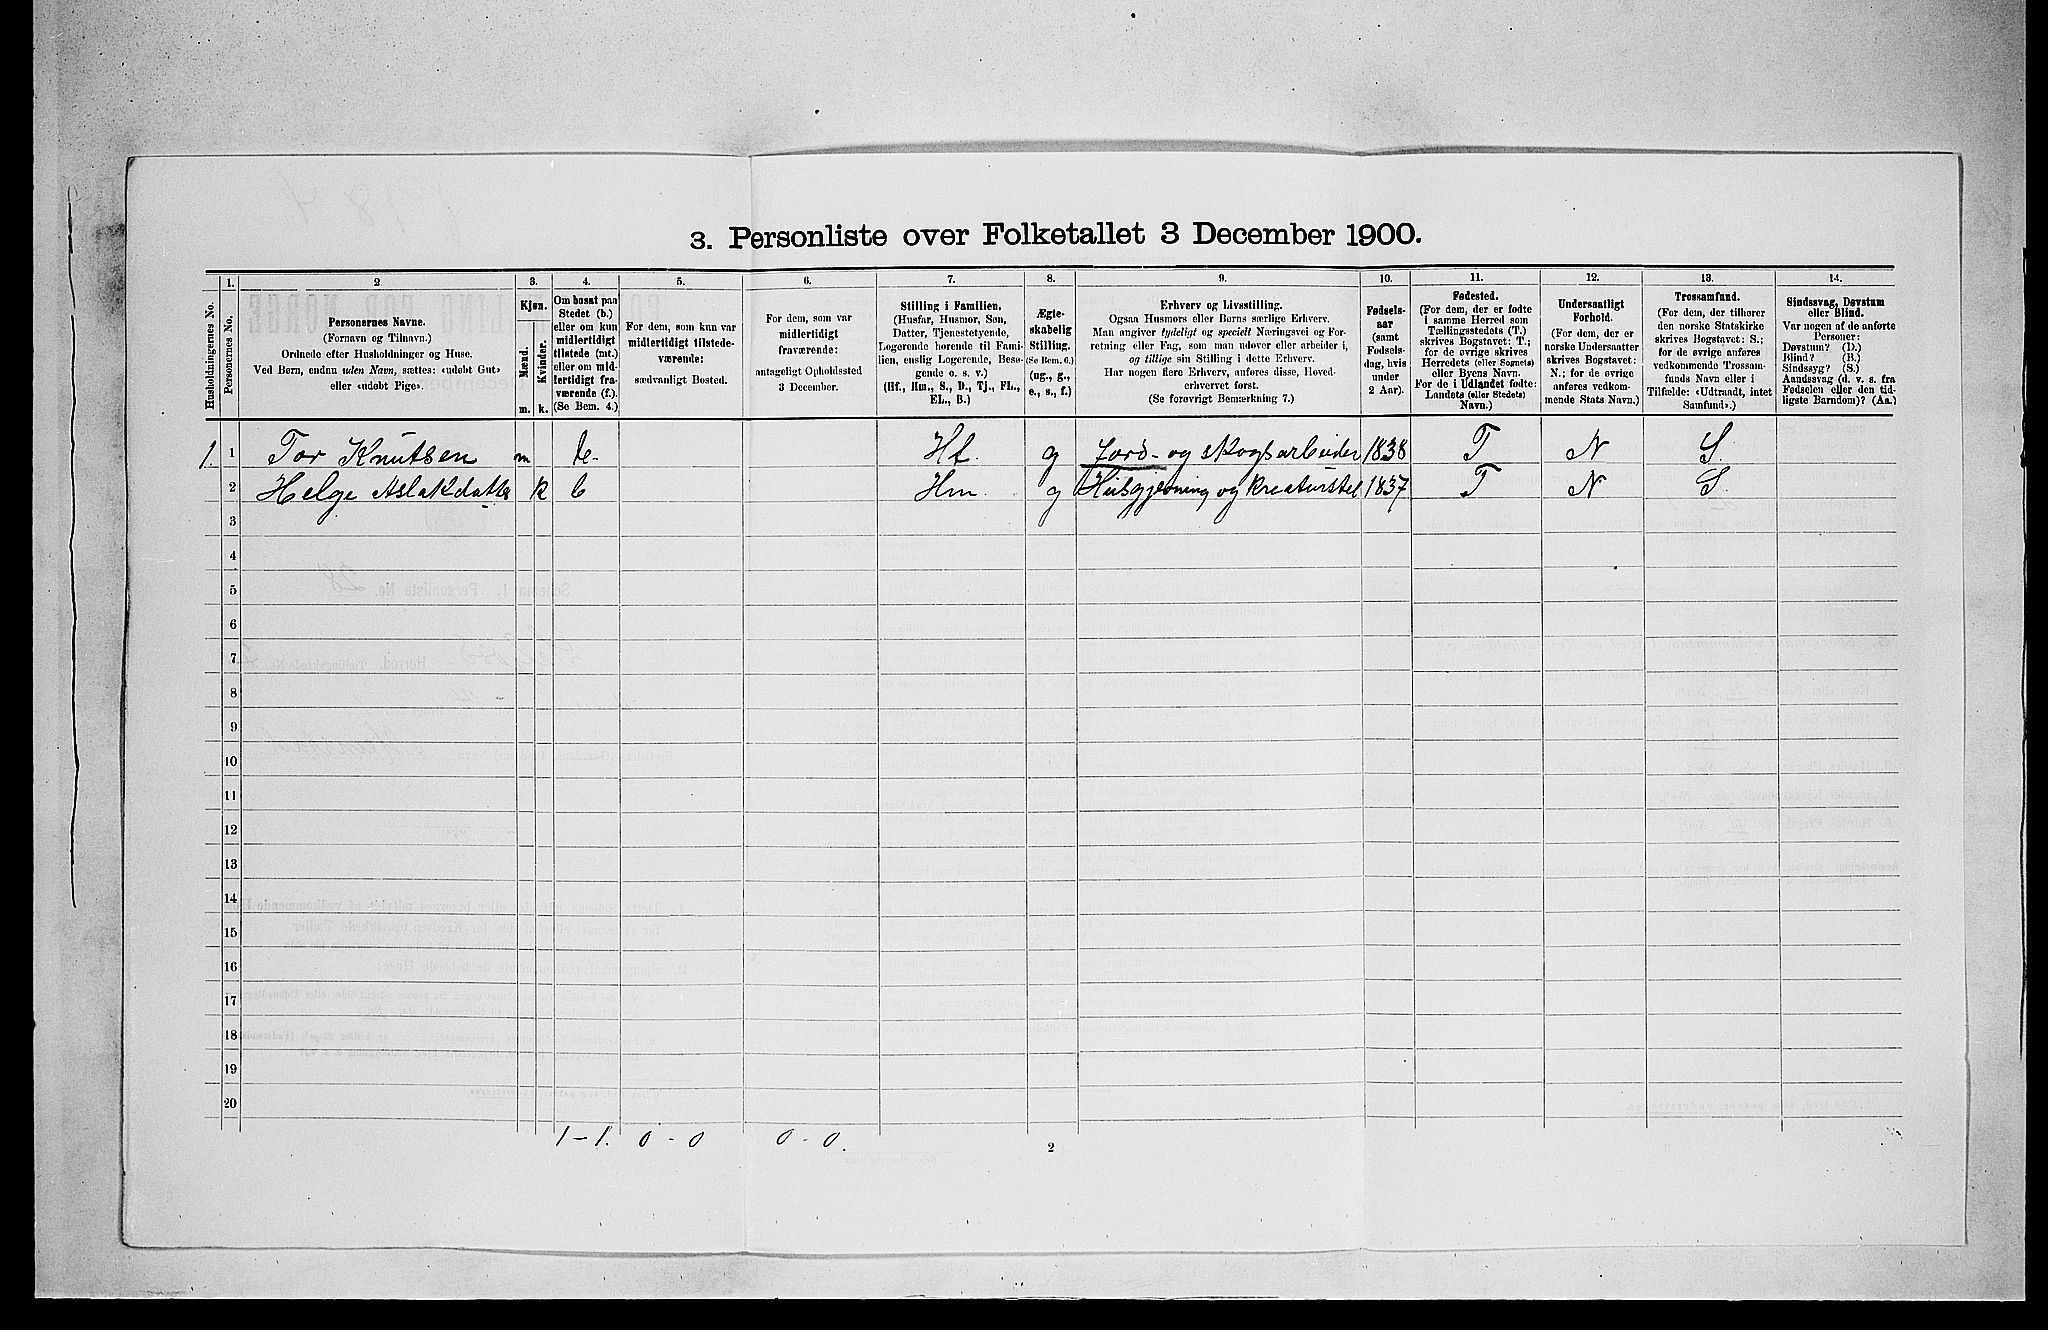 3. Personliste over Folketallet 3 December 1900.
Husholdningernes No.
1.
Personernes No.
2
Personernes Navne.
(Fornavn og Tilnavn.)
Ordnede efter Husholdninger og Huse.
Ved Børn, endnu uden Navn, sættes: «udøbt Gut»
eller «udøbt Pige».
3.
Kjøn.
Mænd.
Kvinder.
m.
k.
4.
Om bosat paa
Stedet (b.)
eller om kun
midlertidigt
tilstede (mt.)
eller om mid-
lertidigt fra-
værende (f.).
(Se Bem. 4.)
5.
For dem, som kun var
midlertidigt tilstede-
værende:
sædvanligt Bosted.
6.
For dem, som var
midlertidigt
fraværende:
antageligt Opholdssted
3 December.
7.
Stilling i Familien.
(Husfar, Husmor, Søn,
Datter, Tjenestetyende,
Logerende hørende til Fami-
lien, enslig Logerende, Besø-
gende o. s. v.)
(Hf., Hm., S., D., Tj., FL.,
EL., B.)
8.
Ægte-
skabelig
Stilling.
(Se Bem. 6.)
(ug., g.,
e., s., f.)
9.
Erhverv og Livsstilling.
Ogsaa Husmors eller Børns særlige Erhverv.
Man angiver tydeligt og specielt Næringsvei og For-
retning eller Fag, som man udøver eller arbeider i,
og tillige sin Stilling i dette Erhverv.
Har nogen flere Erhverv, anføres disse, Hoved-
erhvervet først.
(Se forøvrigt Bemærkning 7.)
10.
Fødsels-
aar
(samt
Fødsels-
dag, hvis
under
2 Aar).
11.
Fødested.
(For dem, der er fødte
i samme Herred som
Tællingsstedets (T.)
skrives Bogstavet: T.;
for de øvrige skrives
Herredets (eller Sognets)
eller Byens Navn.
For de i Udlandet fødte:
Landets (eller Stedets)
Navn.)
12.
Undersaatligt
Forhold.
(For dem, der er
norske Undersaatter
skrives Bogstavet:
N.; for de øvrige
anføres vedkom-
mende Stats Navn.)
13.
Trossamfund.
(For dem, der tilhører
den norske Statskirke
skrives Bogstavet: S.;
for de øvrige anføres
vedkommende Trossam-
funds Navn eller i
Tilfælde: «Udtraadt, intet
Samfund».)
14.
Sindssvag, Døvstum
eller Blind.
Var nogen af de anførte
Personer:
Døvstum? (D.)
Blind? (B.)
Sindssyg? (S.)
Aandssvag (d. v. s. fra
Fødselen eller den tid-
ligste Barndom)? (Aa.)
1. 1 Tor Knutsen m b. Hf. g Jord- og skogsarbeider 1838 T N S.
2 Helge Aslakdatter k b Hm g Husgjerning og kreaturstel 1837 T N S
3
4
5
6
7
8
9
10
11
12
13
14
15
16
17
18
19
20
1-1. 0-0 0-0.
2